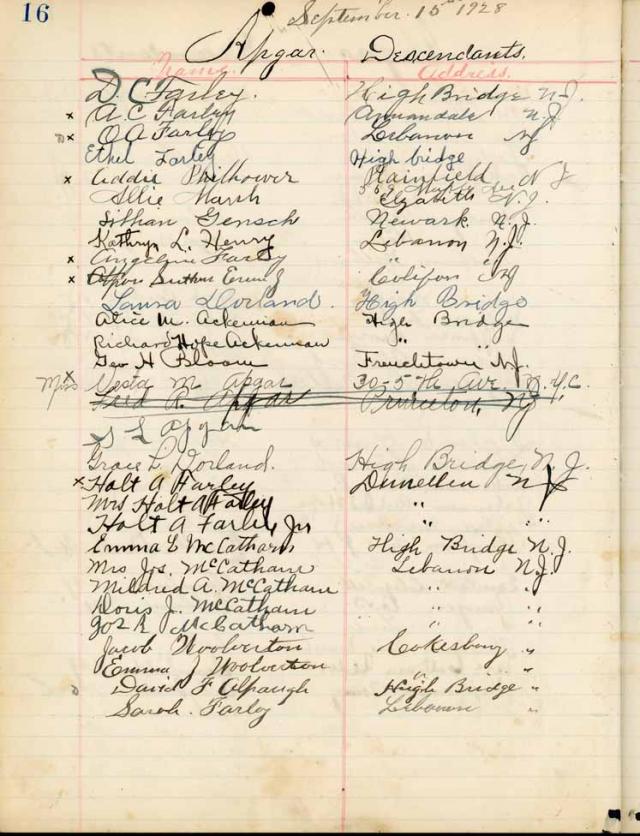 16
September 15th 1928
Apgar Descendants.
Name. Address.
D. C. Farley. High Bridge N.J.
x A. C. Farley Annandale N.J.
x O A Farley Lebanon NJ
Ethel Farley High bridge
x Addie Philhower Plainfield N J
Allie Marsh Elizabeth N.J.
Lillian Gensch Newark N.J.
Kathryn L. Henry Lebanon N.J.
x Angeline Farley " "
x Sutton Califon NJ
Laura Dorland. High Bridge
Alice M. Ackerman High Bridge
Richard Hope Ackerman "
Geo H Bloom Frenchtown N.J.
Miss x Vesta M Apgar 30-5th Ave N.Y.C.
Fred A. Apgar Princeton, NJ
Apgar
Grace L Dorland. High Bridge, N.J.
x Holt A Farley Dunellen N J
Mrs Holt A Farley " "
Holt A Farley Jr " "
Emma E McCatharn High Bridge N.J.
Mrs Jos. McCatharn Lebanon N.J.
Mildred A. McCatharn " "
Doris J. McCatharn " "
Jos R McCatharn " "
Jacob Woolverton Cokesbury "
Emma J Woolverton " "
David F Alpaugh High Bridge "
Sarah. Farley Lebanon "